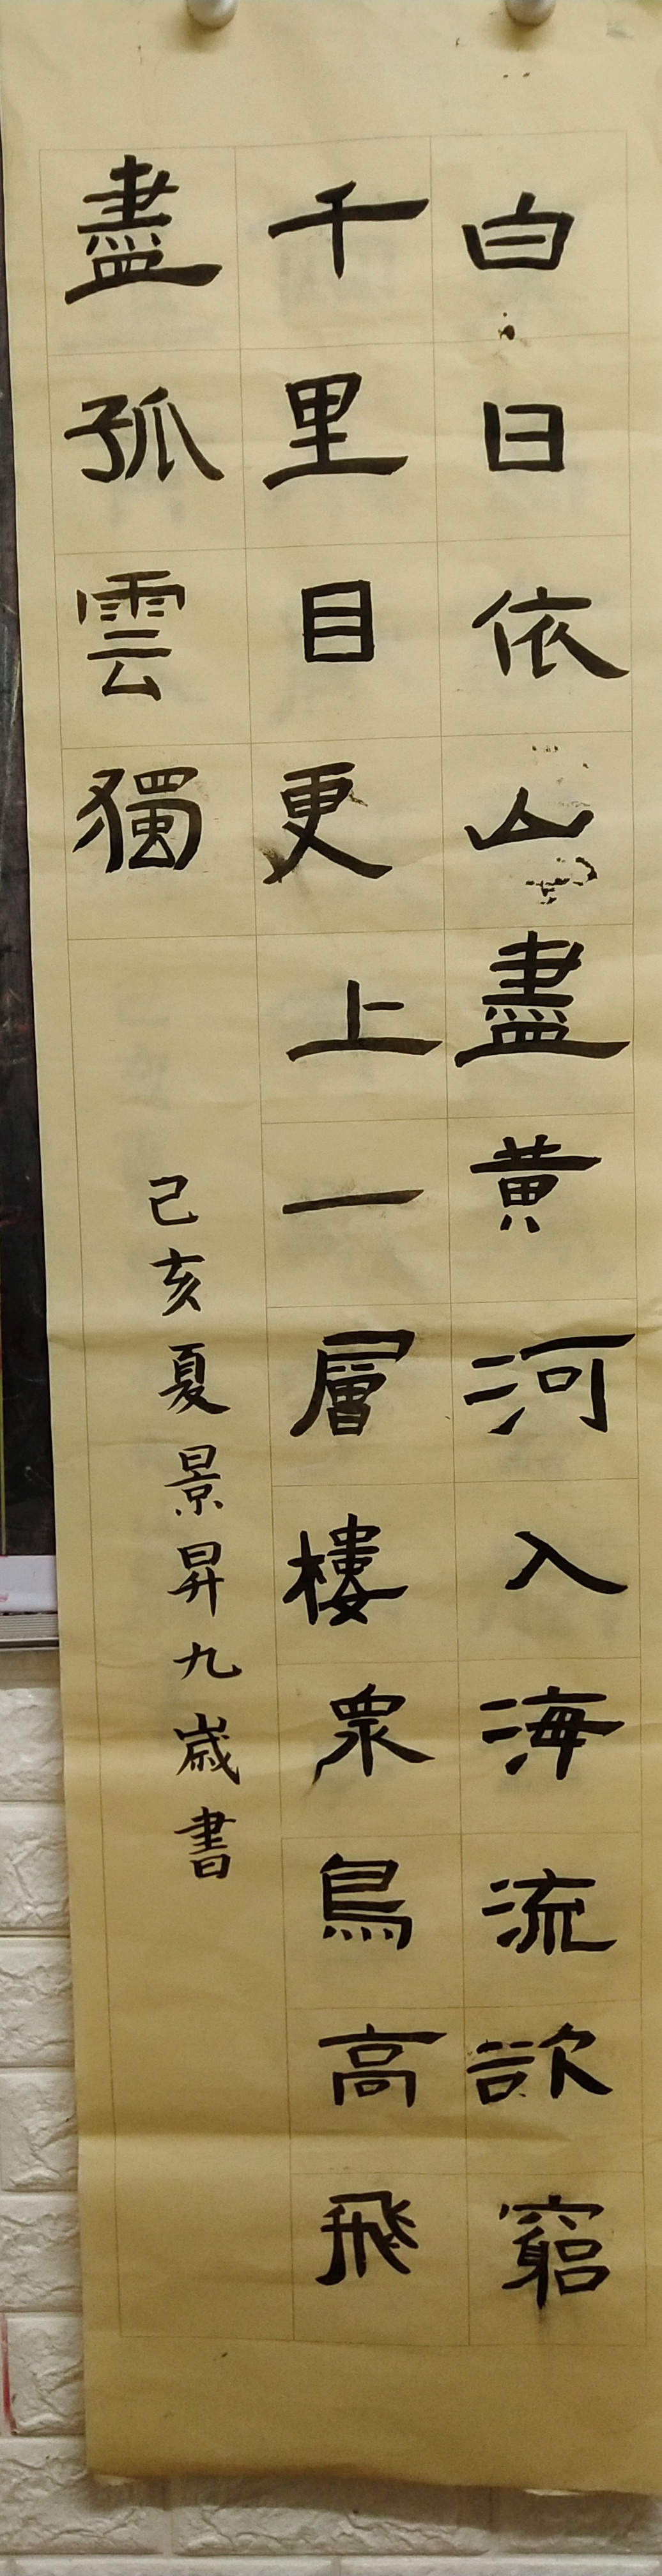 白日依山盡黃河入海流欲窮
千里目更上一層樓眾鳥高飛
盡孤雲獨
己亥夏景昇九歲書